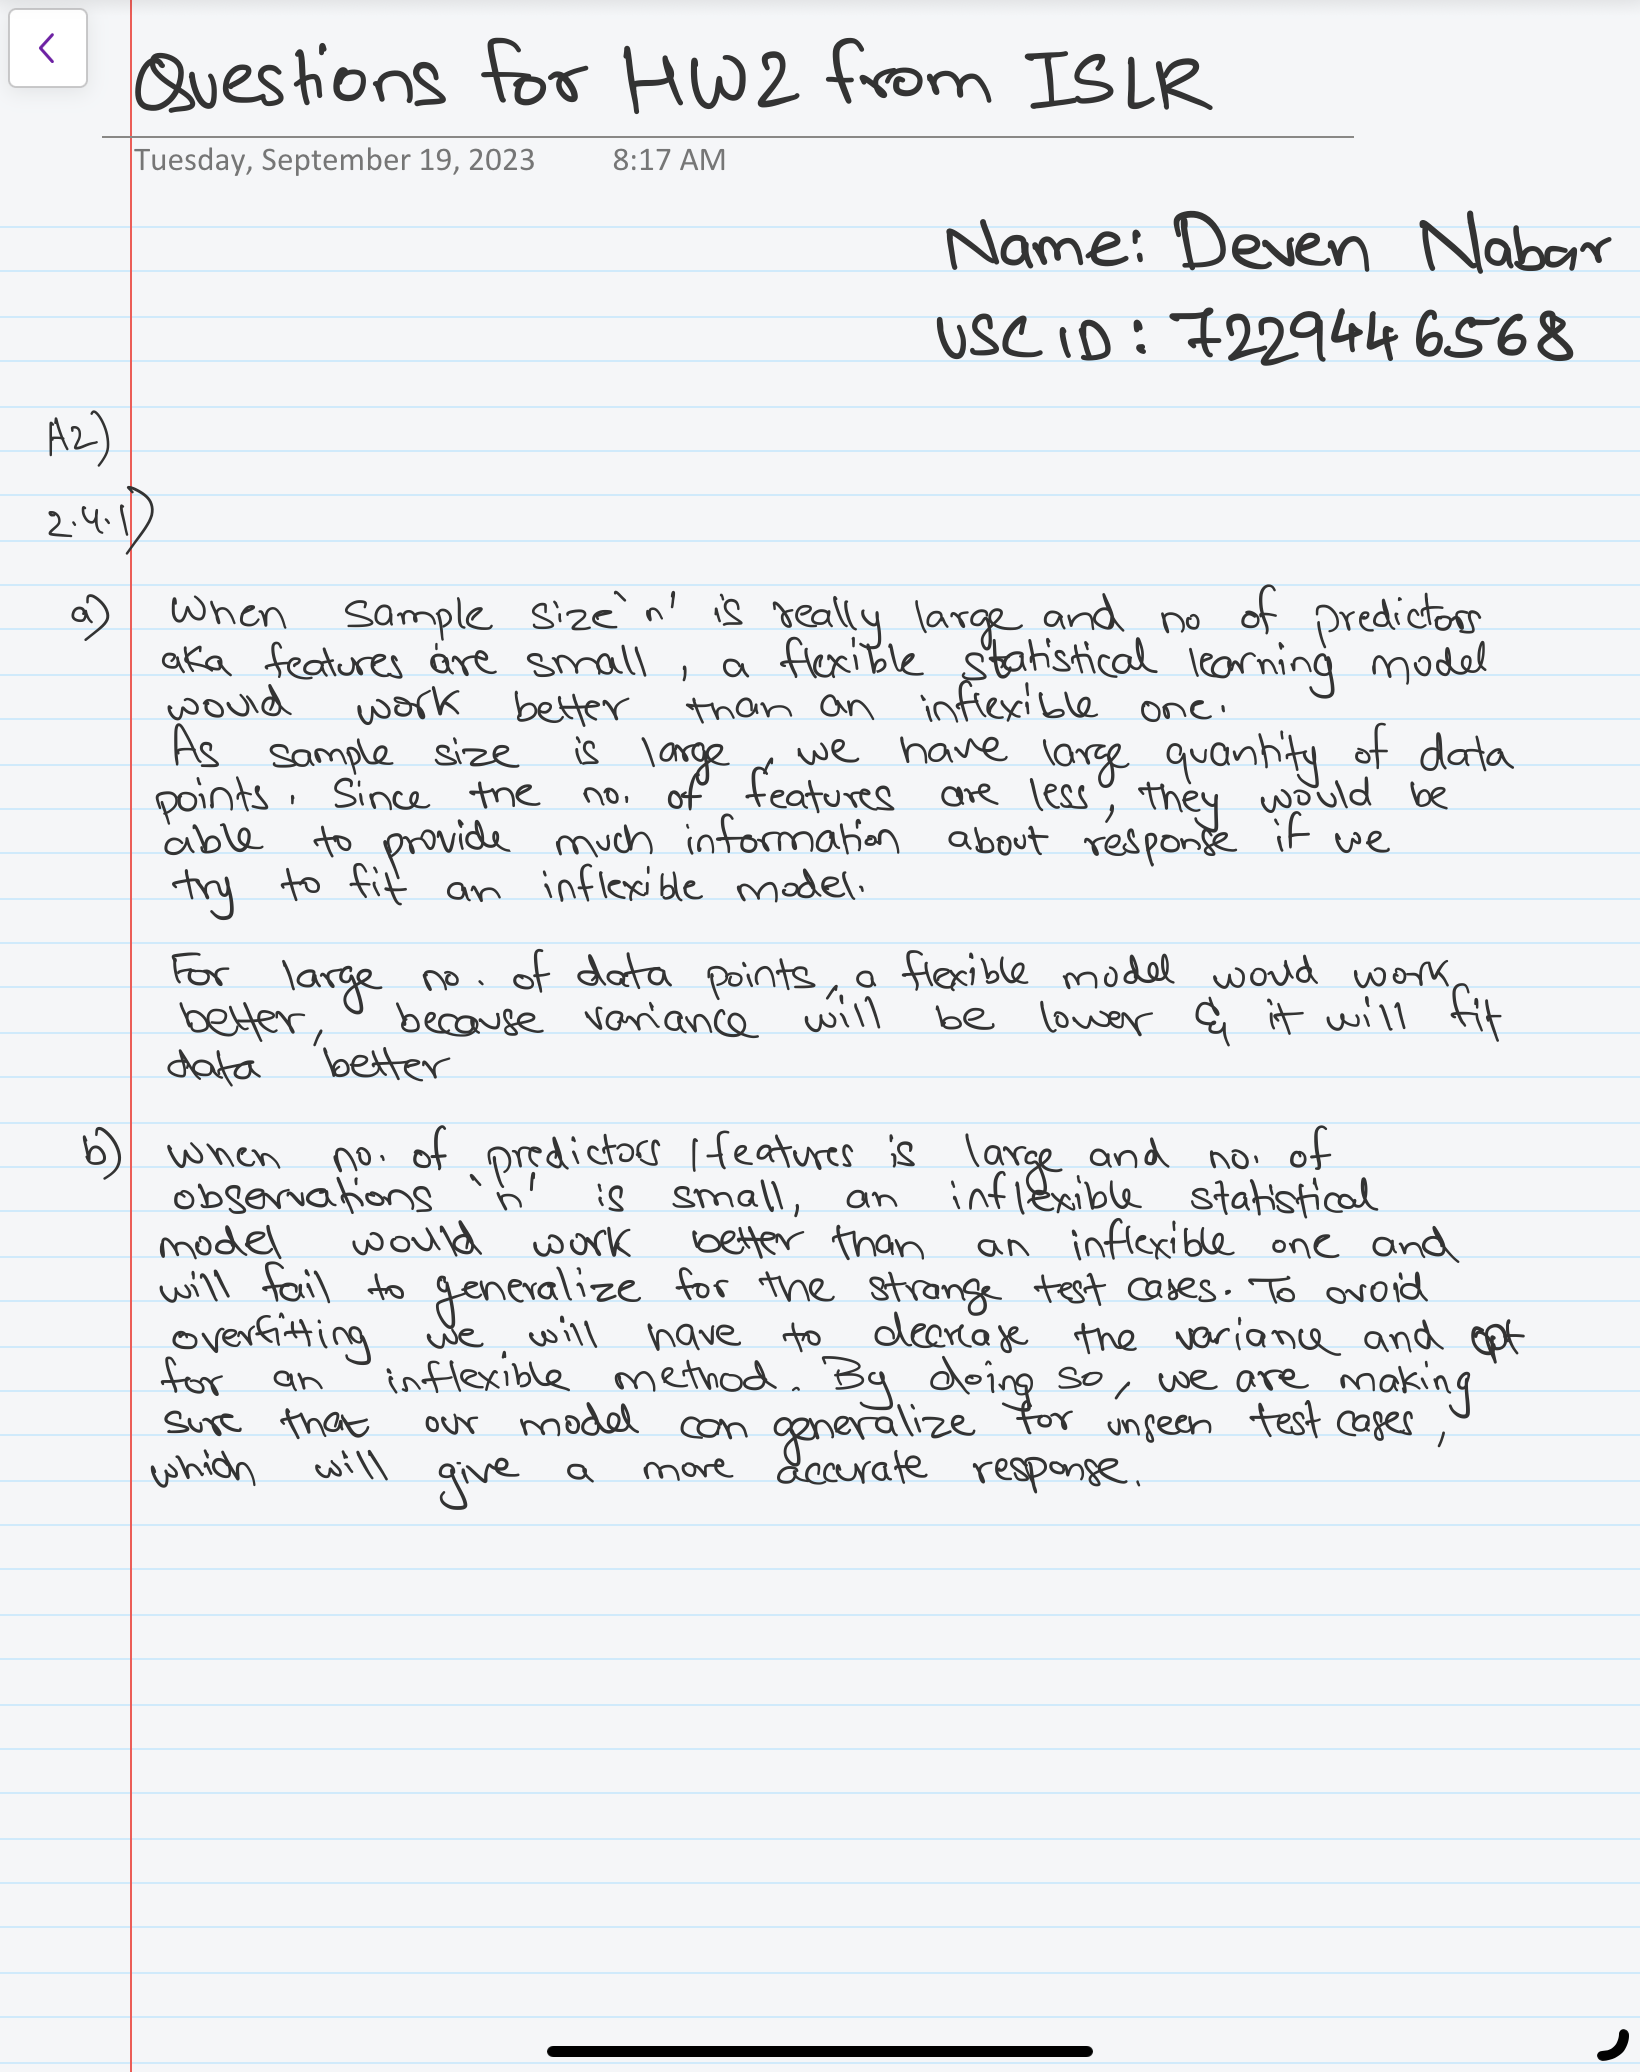 Questions for HW2 from ISLR
Tuesday, September 19, 2023 8:17 AM
Name: Deven Nabar
USC ID: 7229446568
A2)
2.4.1)
a) When sample size 'n' is really large and no of predictors
aka features are small, a flexible statistical learning model
would work better than an inflexible one.
As sample size is large, we have large quantity of data
points. Since the no. of features are less, they would be
able to provide much information about response if we
try to fit an inflexible model.
For large no. of data points, a flexible model would work
better, because variance will be lower & it will fit
data better
b) When no. of predictors / features is large and no. of
observations 'n' is small, an inflexible statistical
model would work better than an inflexible one and
will fail to generalize for the strange test cases. To avoid
overfitting we will have to decrease the variance and opt
for an inflexible method. By doing so, we are making
sure that our model can generalize for unseen test cases,
which will give a more accurate response.